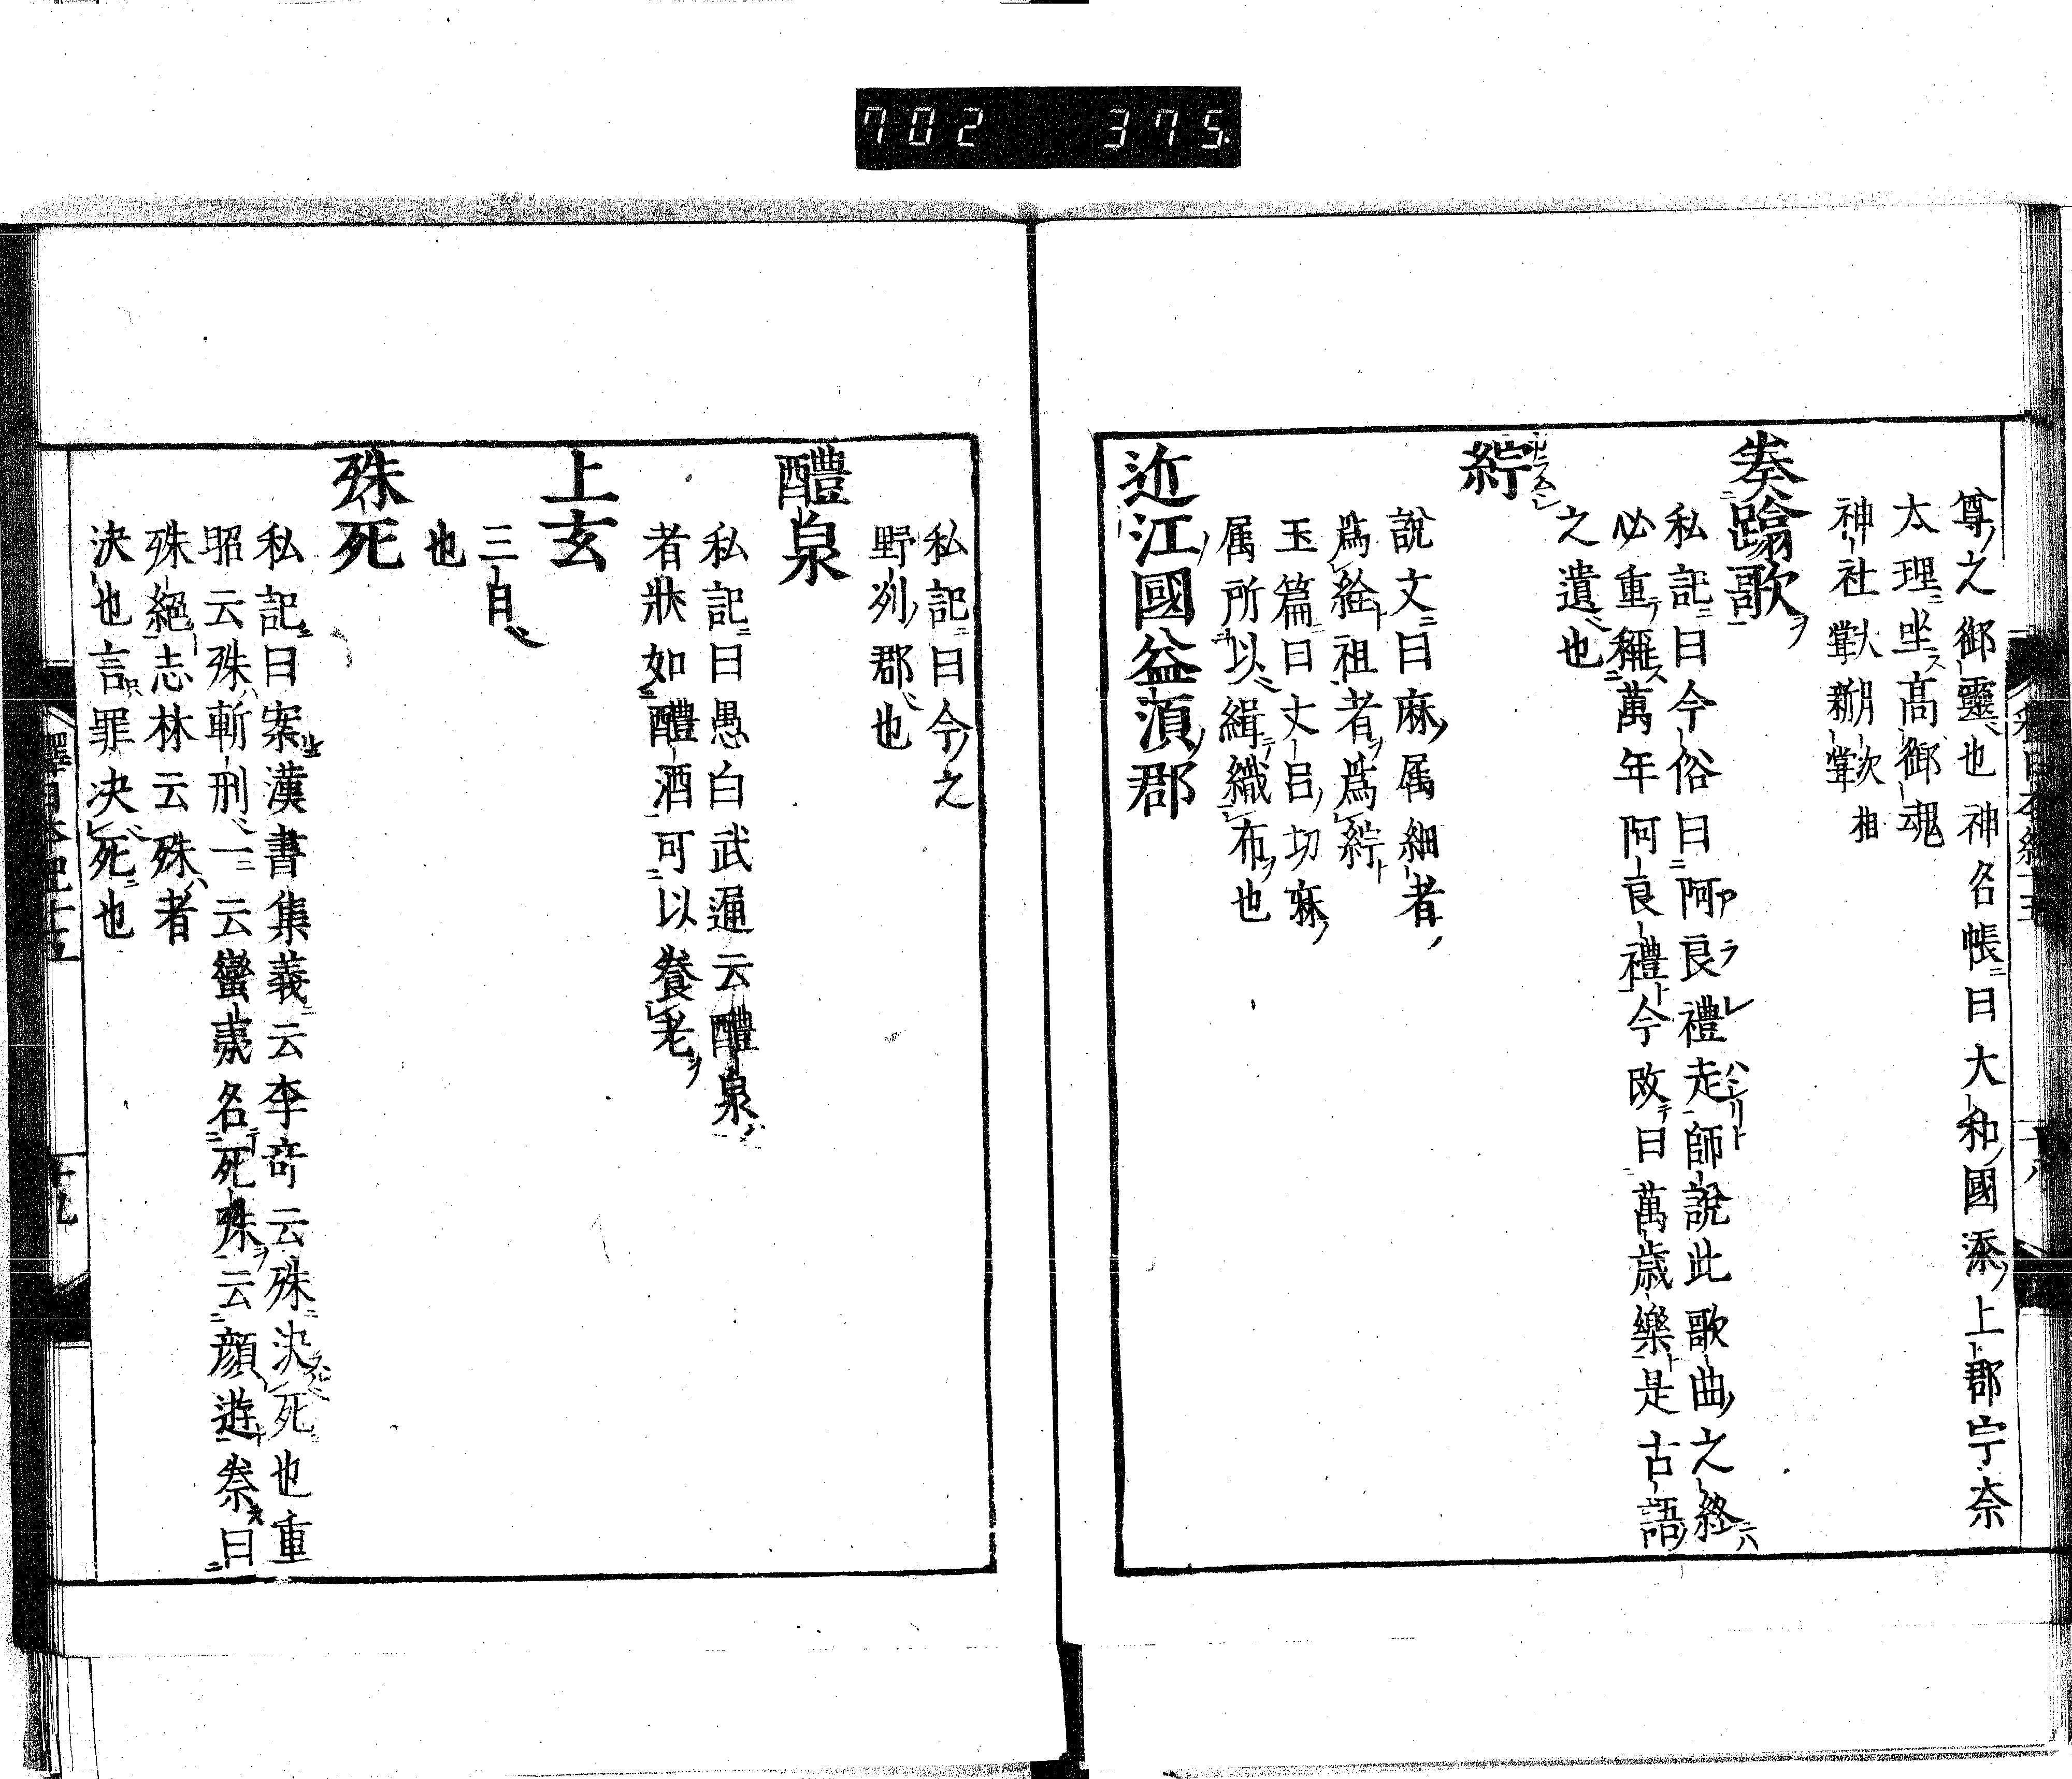 702 375
尊之御靈也神名帳曰大和國添上郡宇奈
太理坐高御魂
神社 大月次相
新
奏蹹歌
私記曰今俗曰阿良禮走師説此歌曲之終
必重稱萬年阿良禮今改曰萬歳樂是古語
之遺也
紵
説文曰麻属細者
爲絟粗者爲紵
玉篇曰丈呂切麻
属所以緝織布也
近江國益須郡
私記曰今之
野洲郡也
醴泉
私記曰愚白武通云醴泉
者狀如醴酒可以養老
上玄
三白
也
殊死
私記曰案漢書集義云李奇云殊決死也重
昭云殊斬刑一云蠻夷名死殊云顔遊秦曰
殊絕志林云殊者
決也言罪决死也